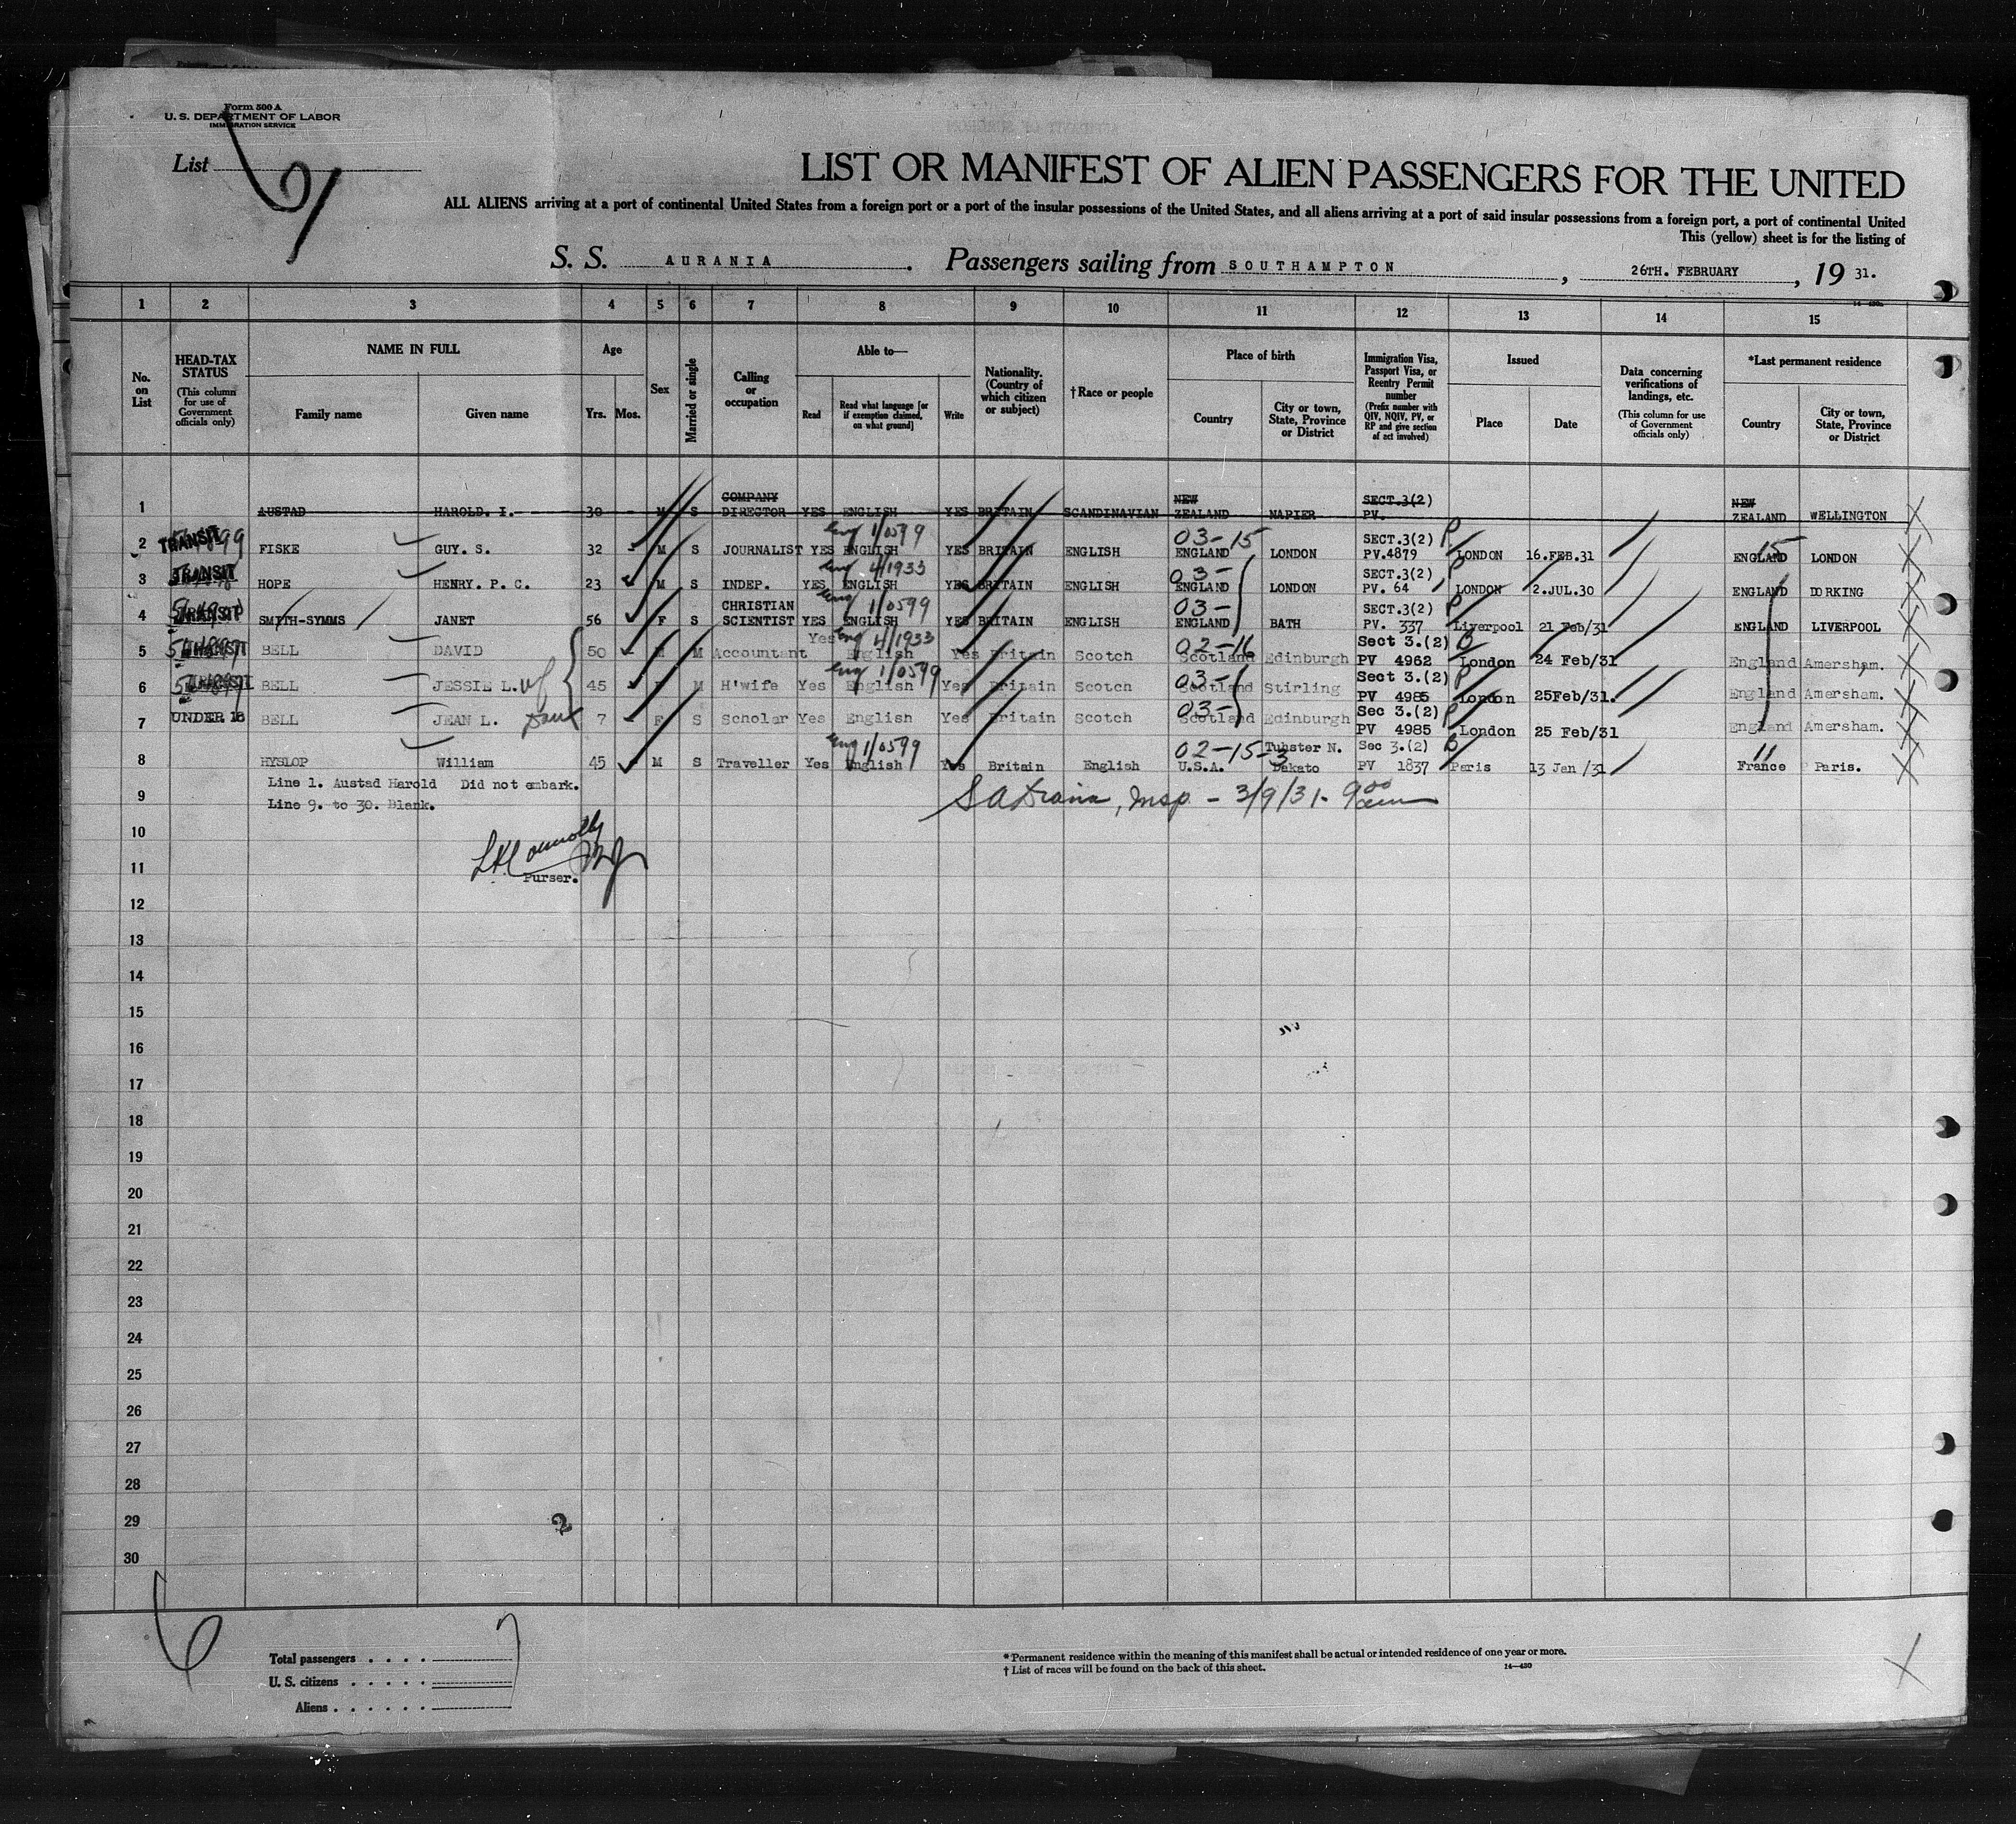 Form 500 A
U. S. DEPARTMENT OF LABOR
IMMIGRATION SERVICE
List 6
LIST OR MANIFEST OF ALIEN PASSENGERS FOR THE UNITED
ALL ALIENS arriving at a port of continental United States from a foreign port or a port of the insular possessions of the United States, and all aliens arriving at a port of said insular possessions from a foreign port, a port of continental United
This (yellow) sheet is for the listing of
S. S. AURANIA. Passengers sailing from SOUTHAMPTON, 26TH. FEBRUARY, 19 31.
1 2 3 4 5 6 7 8 9 10 11 12 13 14 15
No. on List
HEAD-TAX STATUS (This column for use of Government officials only)
NAME IN FULL
Family name Given name
Age
Yrs. Mos.
Sex
Married or single
Calling or occupation
Able to—
Read
Read what language [or if exemption claimed, on what ground]
Write
Nationality. (Country of which citizen or subject)
†Race or people
Place of birth
Country
City or town, State, Province or District
Immigration Visa, Passport Visa, or Reentry Permit number (Prefix number with QIV, NQIV, PV, or RP and give section of act involved)
Issued
Place Date
Data concerning verifications of landings, etc. (This column for use of Government officials only)
*Last permanent residence
Country
City or town, State, Province or District
1 AUSTAD HAROLD. I. 30 M S COMPANY DIRECTOR YES ENGLISH YES BRITAIN SCANDINAVIAN NEW ZEALAND NAPIER SECT.3(2) PV. NEW ZEALAND WELLINGTON
2 TRANSIT FISKE GUY. S. 32 M S JOURNALIST YES ENGLISH Eng 1/0599 YES BRITAIN ENGLISH 03-15 ENGLAND LONDON SECT.3(2) PV.4879 P LONDON 16.FEB.31 ENGLAND 15 LONDON
3 TRANSIT HOPE HENRY. P. C. 23 M S INDEP. YES ENGLISH Eng 4/1933 YES BRITAIN ENGLISH 03- ENGLAND LONDON SECT.3(2) PV. 64 P LONDON 2.JUL.30 ENGLAND DORKING
4 TRANSIT SMITH-SYMMS JANET 56 F S CHRISTIAN SCIENTIST YES ENGLISH Eng 1/0599 YES BRITAIN ENGLISH 03- ENGLAND BATH SECT.3(2) PV. 337 P Liverpool 21 Feb/31 ENGLAND LIVERPOOL
5 TRANSIT BELL DAVID 50 M M Accountant Yes English Eng 4/1933 Yes Britain Scotch 02-16 Scotland Edinburgh Sect 3.(2) PV 4962 B London 24 Feb/31 England Amersham.
6 TRANSIT BELL JESSIE L. wf 45 F M H'wife Yes English Eng 1/0599 Yes Britain Scotch 03- Scotland Stirling Sect 3.(2) PV 4985 P London 25Feb/31. England Amersham.
7 UNDER 16 BELL JEAN L. Dau 7 F S Scholar Yes English Yes Britain Scotch 03- Scotland Edinburgh Sec 3.(2) PV 4985 P London 25 Feb/31 England Amersham.
8 HYSLOP William 45 M S Traveller Yes English Eng 1/0599 Yes Britain English 02-15-3 U.S.A. Tubster N. Dakato Sec 3.(2) PV 1837 B Paris 13 Jan /31 11 France Paris.
Line 1. Austad Harold Did not embark.
9 Line 9. to 30. Blank.
Insp. - 3/9/31- 9 00 am
10
11 Purser.
12
13
14
15
16
17
18
19
20
21
22
23
24
25
26
27
28
29 2
30
6
Total passengers . . . . 7
U. S. citizens . . . . .
Aliens . . . . . .
* Permanent residence within the meaning of this manifest shall be actual or intended residence of one year or more.
† List of races will be found on the back of this sheet. 14—430